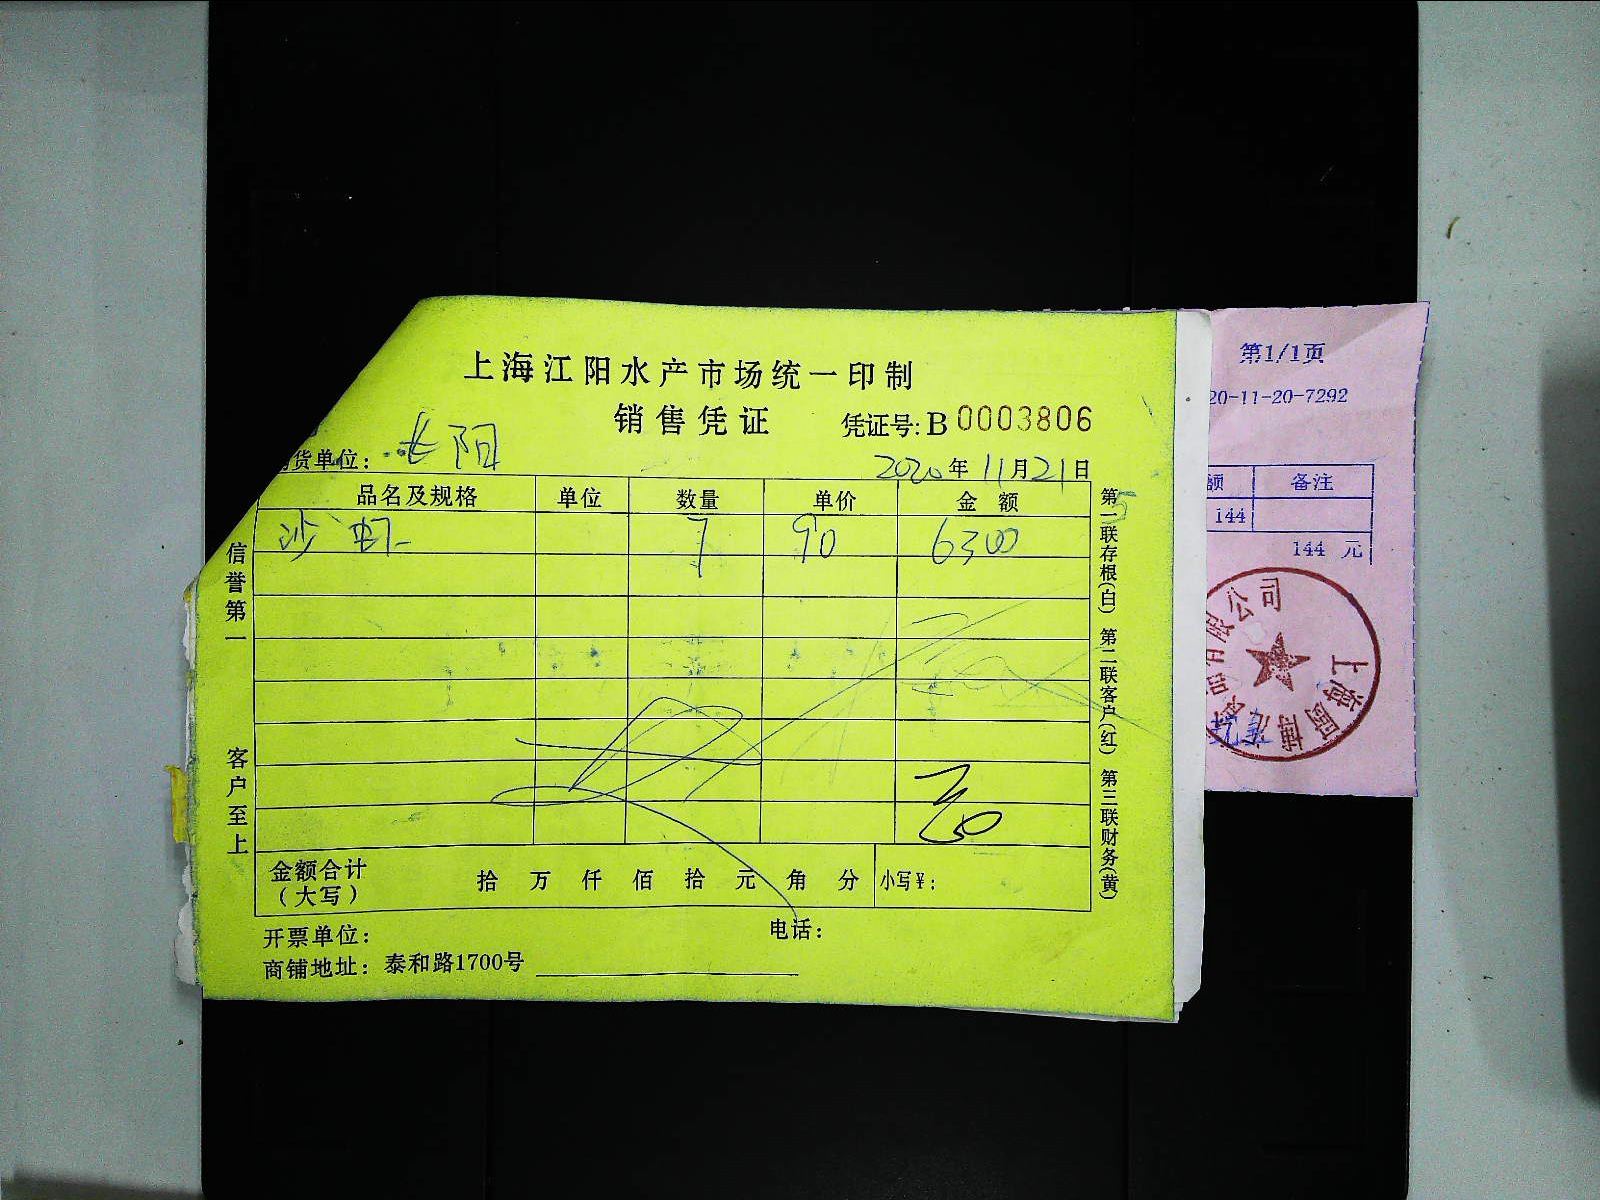 上海江阳水产市场统一印制
销售凭证 凭证号: B 0003806
货单位: 长阳 2020年11月21日
品名及规格 单位 数量 单价 金额
沙虾 7 90 6300
信誉第一 客户至上
第一联存根(白) 第二联客户(红) 第三联财务(黄)
金额合计(大写) 拾 万 仟 佰 拾 元 角 分 小写¥:
开票单位: 电话:
商铺地址: 泰和路1700号
第1/1页
20-11-20-7292
额 备注
144
144 元
上海
有限公司